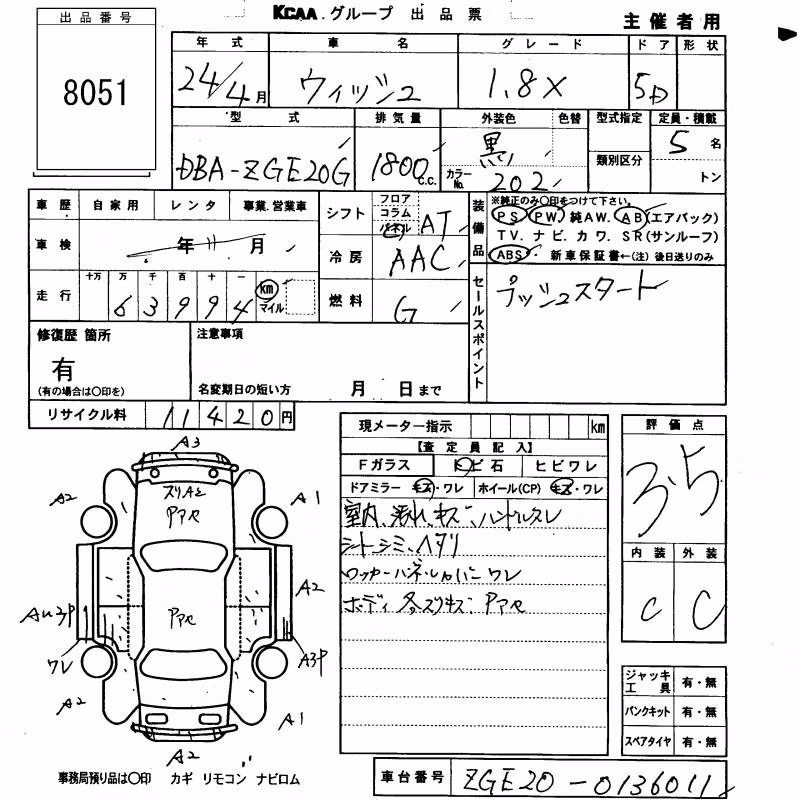 KCAA グループ 出品票
主催者用
出品番号
8051
年式 車名 グレード ドア 形状
24/4月 ウィッシュ 1.8X 5D
型式 排気量 外装色 色替 型式指定 定員・積載
DBA-ZGE20G 1800c.c. 黒 カラーNo. 202 類別区分 5名 トン
車歴 自家用 レンタ 事業.営業車
車検 年 11月
走行 十万 万 千 百 十 一
63994 km マイル
シフト フロア コラム パネル AT
冷房 AAC
燃料 G
装備品 ※純正のみ〇印をつけて下さい。
PS PW 純AW. AB(エアバック)
TV. ナビ. カワ. SR(サンルーフ)
ABS 新車保証書←(注)後日送りのみ
セールスポイント
プッシュスタート
修復歴 箇所
有
(有の場合は〇印を)
注意事項
名変期日の短い方 月 日まで
リサイクル料 11420円
現メーター指示 km
【査定員記入】
Fガラス トビ石 ヒビワレ
ドアミラー キズ・ワレ ホイール(CP) キズ・ワレ
室内、汚れ、キズ、ハンドルスレ
シートシミ、ヘタリ
ロッカーパネル、レ バー ワレ
ボディ 各、スリキズ
評価点
3.5
内装 外装
C C
ジャッキ工具 有・無
パンクキット 有・無
スペアタイヤ 有・無
A3
A2 A1
A2
ワレ A3P
A2 A1
A2
事務局預り品は〇印 カギ リモコン ナビロム
車台番号 ZGE20-0136011